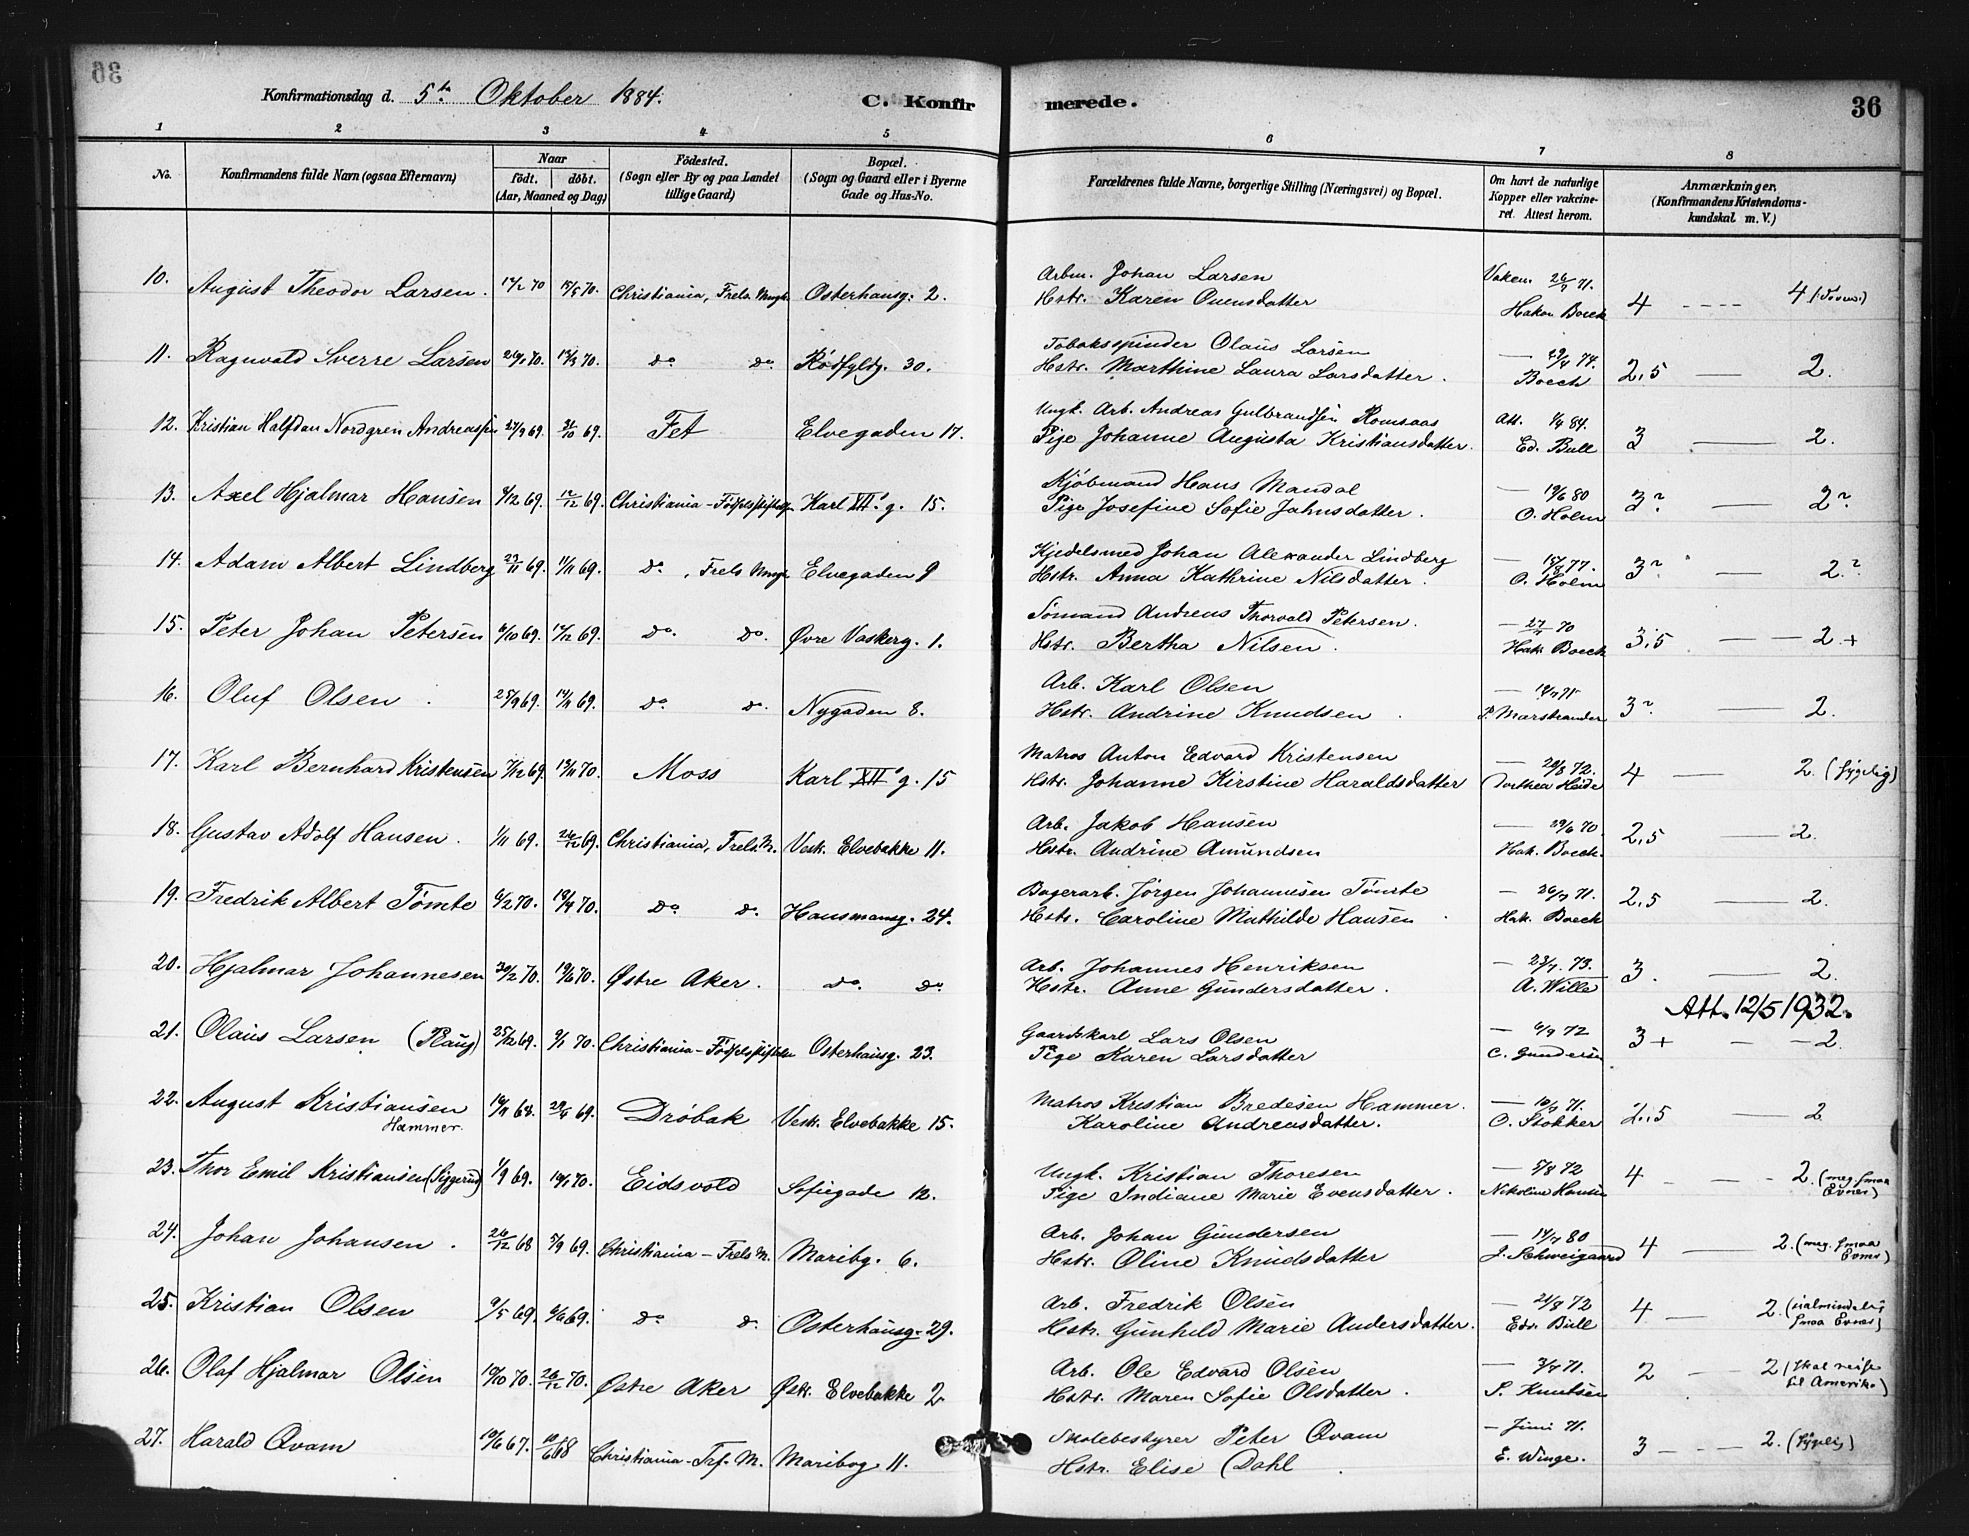 36
Konfirmationsdag d. 5te Oktober 1884.
C. Konfirmerede.
36
1 2 3 4 5 6 7 8
No.
Konfirmandens fulde Navn (ogsaa Efternavn)
Naar
født. døbt.
(Aar, Maaned og Dag)
Födested.
(Sogn eller By og paa Landet
tillige Gaard)
Bopæl.
(Sogn og Gaard eller i Byerne
Gade og Hus-No.
Forældrenes fulde Navne, borgerlige Stilling (Næringsvei) og Bopæl.
Om havt de naturlige
Kopper eller vakcine-
ret. Attest herom.
Anmærkninger.
(Konfirmandens Kristendoms-
kundskal m. V.)
10. August Theodor Larsen. Christiania, Frels. Osterhausg. 2. Arbm. Johan Larsen
Hstr. Karen Evensdatter Hakon Boeck 4 - - - - 4
11. Ragnvald Sverre Larsen do do. Rødfyldg. 30. Tobaksspinder Olaus Larsen
Hstr. Marthine Laura Larsdatter. Boeck 2,5 — 2.
12. Kristian Halfdan Nordgren Andreassen 27/9 69. 31/10 69. Fet Elvegaden 17. Ungk. Arb. Andreas Gulbrandsen Romsaas
Pige Johanne Augusta Kristiansdatter. Att. Ed. Bull 3 — 2.
13. Axel Hjalmar Hansen 12/12 69. Christiania - Fødselsstiftelsen Karl XII's g. 15. Kjøbmand Hans Mandal
Pige Josefine Sofie Jahnsdatter. — 19/6 80 O. Holm 3? — 2?
14. Adam Albert Lindberg do, Frels Elvegaden 9 Kjedelsmed Johan Alexander Lindberg
Hstr. Anna Kathrine Nilsdatter. O. Holm 3? — 2.?
15. Peter Johan Petersen do. do. Øvre Vaskerg. 1. Sømand Andreas Thorvald Petersen.
Hstr. Bertha Nilsen. — 27/7 70 Hak. Boeck 3,5 — — 2.+
16. Oluf Olsen 25/9 69. 14/11 69. do do. Nygaden 8. Arb. Karl Olsen
Hstr. Andrine Knudsen. P. Marstrander 3? — 2.
17. Karl Bernhard Kristensen Moss Karl XII's g. 15 Matros Anton Edvard Kristensen
Hstr. Johanne Kirstine Haraldsdatter Dorthea Heide 4 — 2. (sygelig)
18. Gustav Adolf Hansen. 1/11 69. 26/12 69. Christiania, Frels. M. Vestr. Elvebakke 11. Arb. Jakob Hansen
Hstr. Andrine Amundsen — 29/6 70 Hak. Boeck. 2,5 — 2.
19. Fredrik Albert Tømte 6/2 70. do do. Hausmansg. 24. Bagerarb. Jørgen Johannesen Tømte
Hstr. Caroline Mathilde Hansen — 26/7 71. Hak. Boeck 2,5 — 2.
20. Hjalmar Johannesen 19/6 70. Østre Aker. do. do Arb. Johannes Henriksen
Hstr. Anne Gundersdatter. — 23/7. 73. A. Wille 3. — 2.
Att. 12/5 1932.
21. Olaus Larsen (Plaug) 25/12 69. 9/1 70. Christiania - Fødselsstiftelsen Osterhausg. 23. Gaardskarl Lars Olsen
Pige Karen Larsdatter — 6/9 72 C. Gundersen 3+ — — 2.
22. August Kristiansen
Hammer. Drøbak Vestr. Elvebakke 15. Matros Kristian Bredesen Hammer.
Karoline Andreasdatter. O. Stokker 2,5 — 2
23. Thor Emil Kristiansen (Siggerud) 1/9 69. Eidsvold Sofiegade 12. Ungk. Kristian Thoresen
Pige Indiane Marie Evensdatter. — 5/8 72 Nikoline Hansen 4 - - - 2. (meg. smaa
Evner)
24. Johan Johansen. 26/12 68 5/9 69. Christiania - Frels M. Maribg. 6. Arb. Johan Gundersen
Hstr. Oline Knudsdatter — 14/7 80 J. Schweigaard 4 — 2. (meg. smaa
Evner)
25. Kristian Olsen 9/5 69. do do. Osterhausg. 29. Arb. Fredrik Olsen
Hstr. Gunhild Marie Andersdatter. — 21/8 72 Edv. Bull 4 — 2. (ualmindelig
smaa Evner)
26. Olaf Hjalmar Olsen 19/10 70. 26/12 70. Østre Aker Østr. Elvebakke 2 Arb. Ole Edvard Olsen
Hstr. Maren Sofie Olsdatter. S. Knutsen 2 — 2 (skal reise
til Amerika)
27. Harald Qvam 19/6 67. Christiania - Trf. M. Maribog. 11. Skolebestyrer Peter Qvam
Hstr. Elise Dahl. — Juni 71. E. Winge. 3 — - — 2. (sygelig)